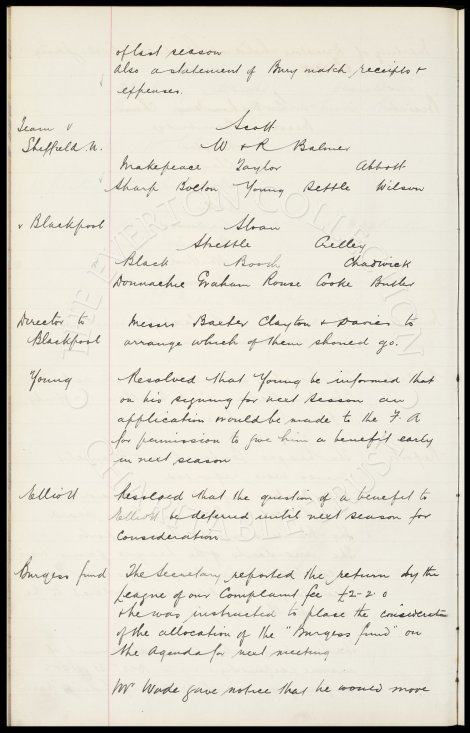 of last season
also a statement of Bury match receipts &
expenses.
Team v Scott
Sheffield U. W & R Balmer
Makepeace Taylor Abbott
Sharp Bolton Young Settle Wilson
v Blackpool Sloan
Strettle Crelley
Black Booth Chadwick
Donnachie Graham Rouse Cooke Butler
Director to Messrs Baxter Clayton & Davies to
Blackpool arrange which of them should go.
Young Resolved that Young be informed that
on his signing for next season an
application would be made to the F. A
for permission to give him a benefit early
in next season
Elliott Resolved that the question of a benefit to
Elliott be deferred until next season for
consideration
Burgess fund The Secretary reported the return by the
League of our Complaint fee £2-2-0
& he was instructed to place the consideration
of the allocation of the "Burgess fund" on
the Agenda for next meeting
Mr Wade gave notice that he would move
THE EVERTON COLLECTION
CHARITABLE TRUST